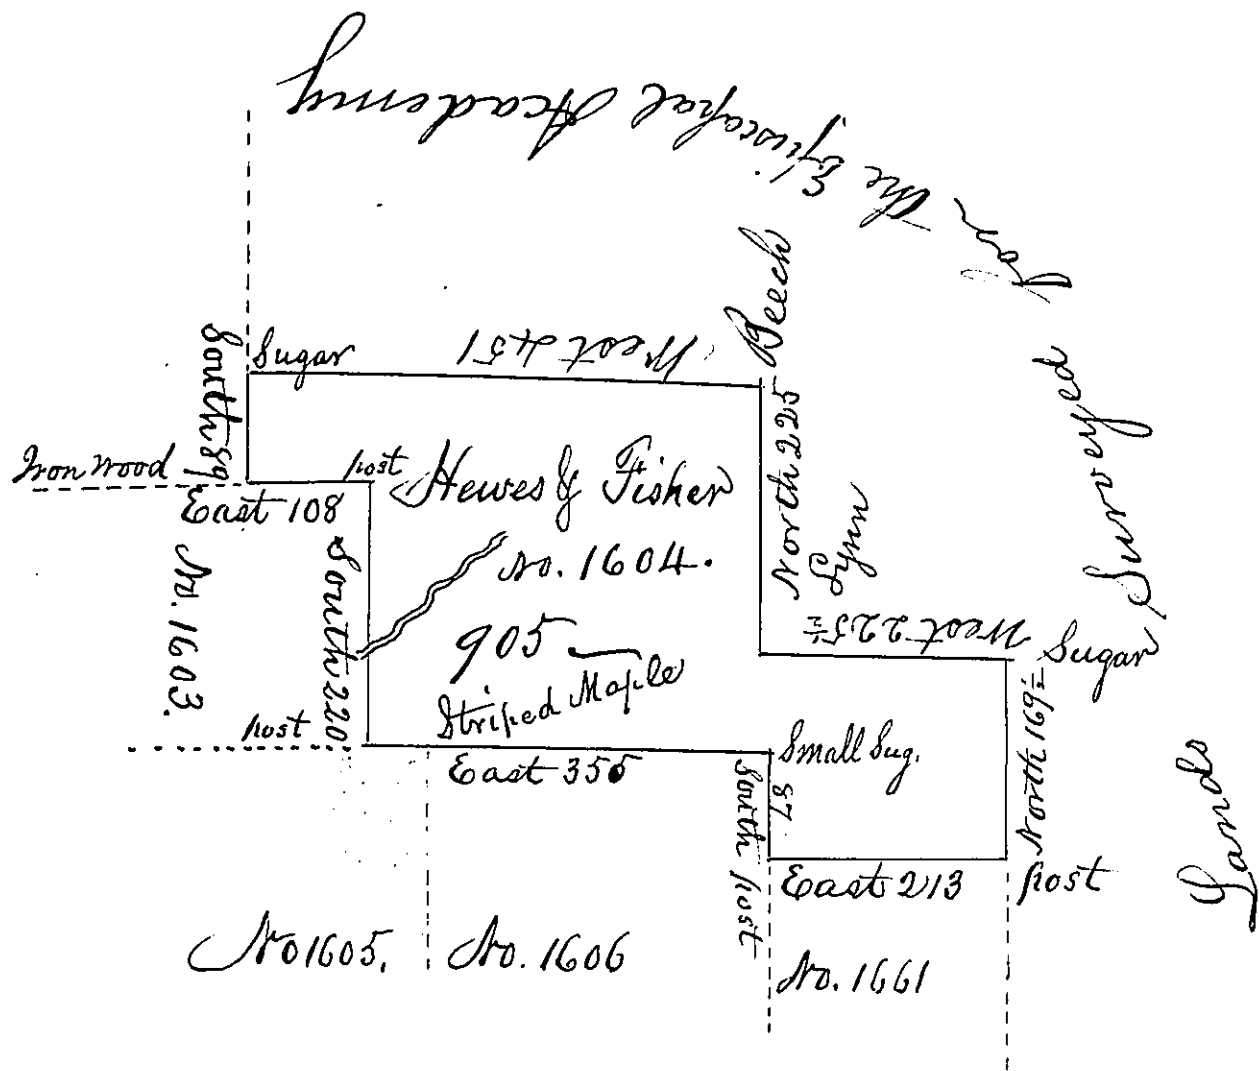 Lands Surveyed for the Episcopal Academy
Beech
West 451
Sugar
South 89
Iron Wood
post
East 108
Hewes & Fisher
No. 1604.
905
Striped Maple
North 225
Lynn
West 225½
Sugar
No. 1603.
South 220
post
East 355
Small Sug.
South 87
post
North 169½
East 213
post
No 1605.
No. 1606
No. 1661